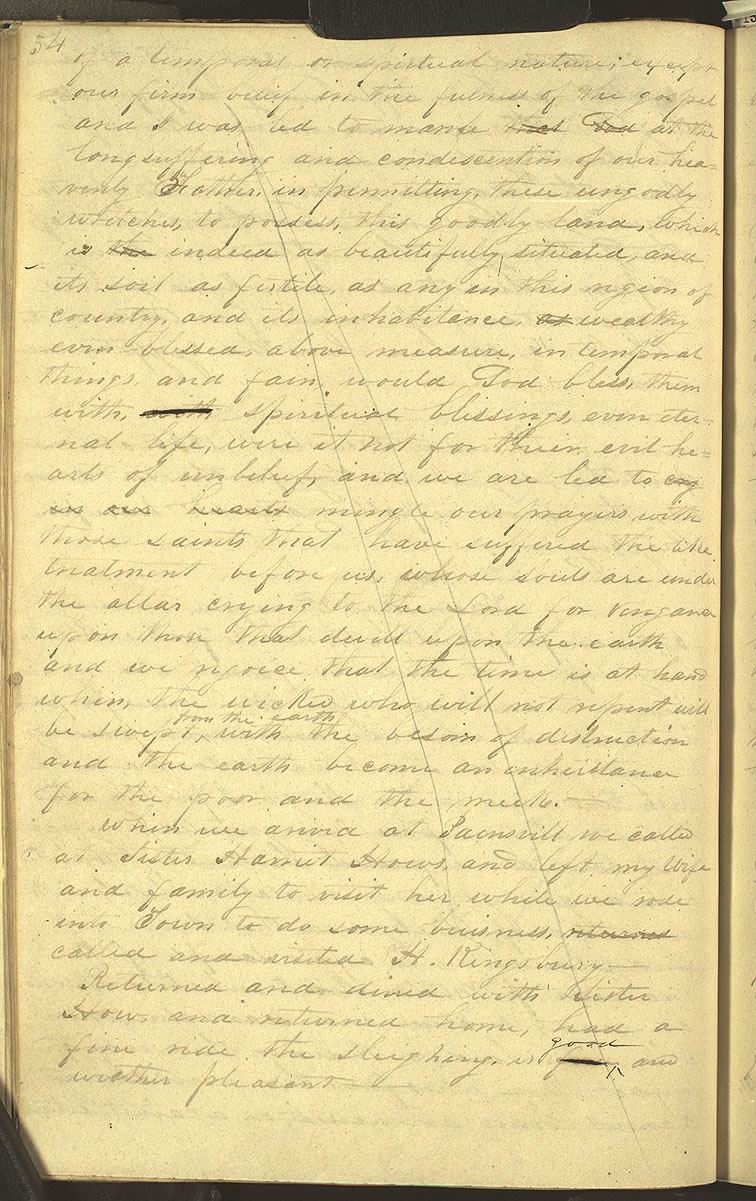 54
of a temporal or spiritual nature; except
our firm belief in the fulness of the gospel
and I was led to marvle that God at the
longsuffering and condescention of our hea=
venly Father, in permitting, these ungodly
wretches, to possess, this goodly land, which
is the indeed as beautifully situated, and
its soil as fertile, as any in this region of
country, and its inhabitance, as wealthy
even blessed, above measure, in temporal
things, and fain, would God bless, them
with, with spiritual blessings, even eter-
nal life, were it not for their evil he=
arts of unbelief, and we are led to cry
in our hearts mingle our prayers with
those saints that have suffered the like
treatment before us, whose souls are under
the altar crying to the Lord for vengance
upon those that dwell upon the earth
and we rejoice that the time is at hand
when, the wicked who will not repent will
from the earth
be swept, with the besom of destruction
and the earth become an inheritance
for the poor and the meek.—
When we arived at Painsvill we called
at Sister Harriet Hows, and left my Wife
and family to visit her while we rode
into Town to do some buisness, returned
called and visited H. Kingsbury—
Returned and dined with Sister
How, and returned home, had a
good
fine ride the sleighing, is and
weather pleasent—